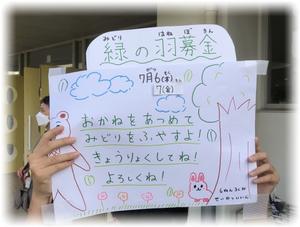 みどり はね ぼ きん
緑の羽募金
7月6(木)
7(金)
おかねをあつめて
みどりをふやすよ!
きょうりょくしてね!
よろしくね!